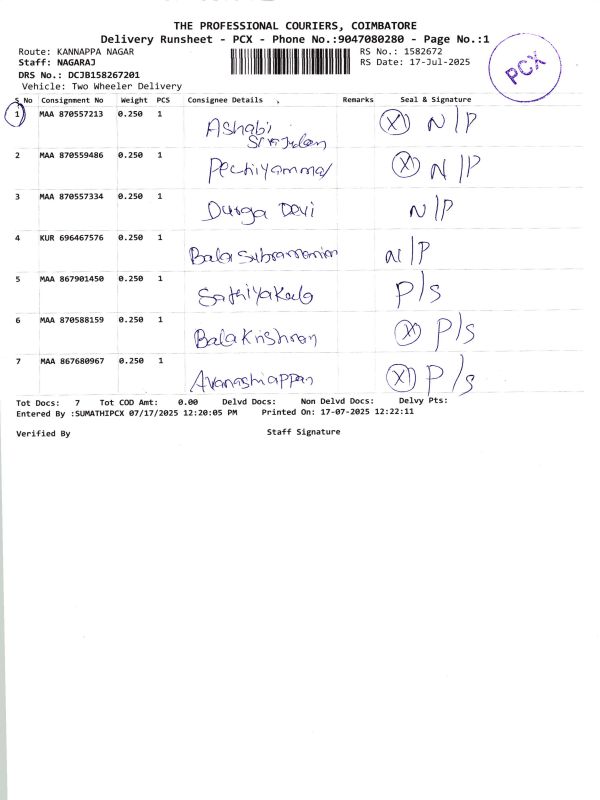 THE PROFESSIONAL COURIERS, COIMBATORE
Delivery Runsheet - PCX - Phone No.:9047080280 - Page No.:1
Route: KANNAPPA NAGAR RS No.: 1582672
Staff: NAGARAJ RS Date: 17-Jul-2025
DRS No.: DCJB158267201
Vehicle: Two Wheeler Delivery
PCX
S No Consignment No Weight PCS Consignee Details Remarks Seal & Signature
1 MAA 870557213 0.250 1 Ashabi (X) N/P
2 MAA 870559486 0.250 1 Pechiyammal (X) N/P
3 MAA 870557334 0.250 1 Durga Devi N/P
4 KUR 696467576 0.250 1 Bala Subramanim N/P
5 MAA 867901450 0.250 1 Sathiyakala P/S
6 MAA 870588159 0.250 1 Bala Krishnan (X) P/S
7 MAA 867680967 0.250 1 Avanashiappan (X) P/S
Tot Docs: 7 Tot COD Amt: 0.00 Delvd Docs: Non Delvd Docs: Delvy Pts:
Entered By :SUMATHIPCX 07/17/2025 12:20:05 PM Printed On: 17-07-2025 12:22:11
Verified By Staff Signature